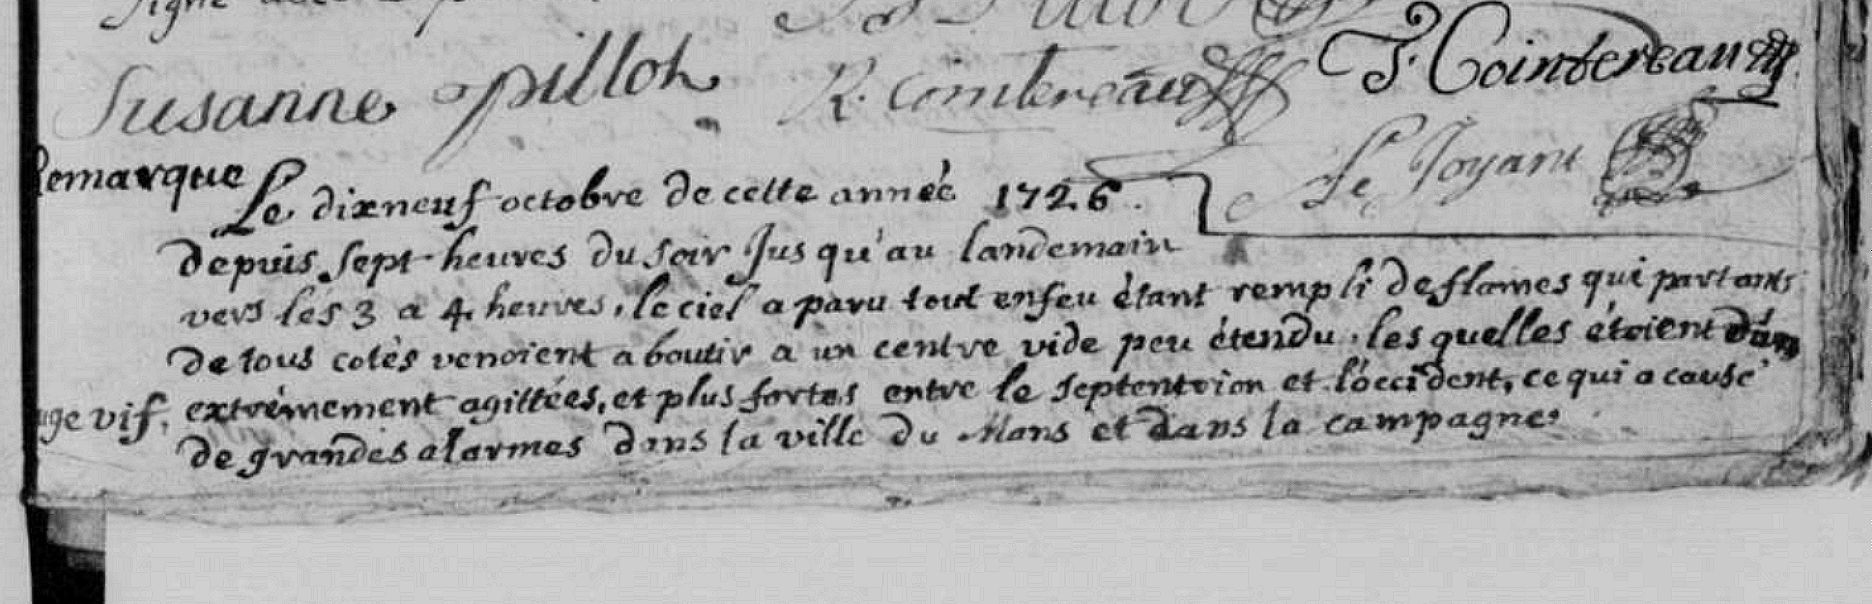 Susanne pillon R. Cointereau J. Cointereau
Le Joyant
Remarque Le dixneuf octobre de cette année 1726.
depuis sept heures du soir Jusqu'au landemain
vers les 3 a 4 heures, le ciel a paru tout enfeu étant rempli de flames qui partants
de tous cotès venoient aboutir a un centre vide peu étendu. les quelles étoient
extrèmement agittées, et plus fortes entre le septentrion et l'occident, ce qui a causé
vif,
de grandes alarmes dans la ville du Mans et dans la campagne.